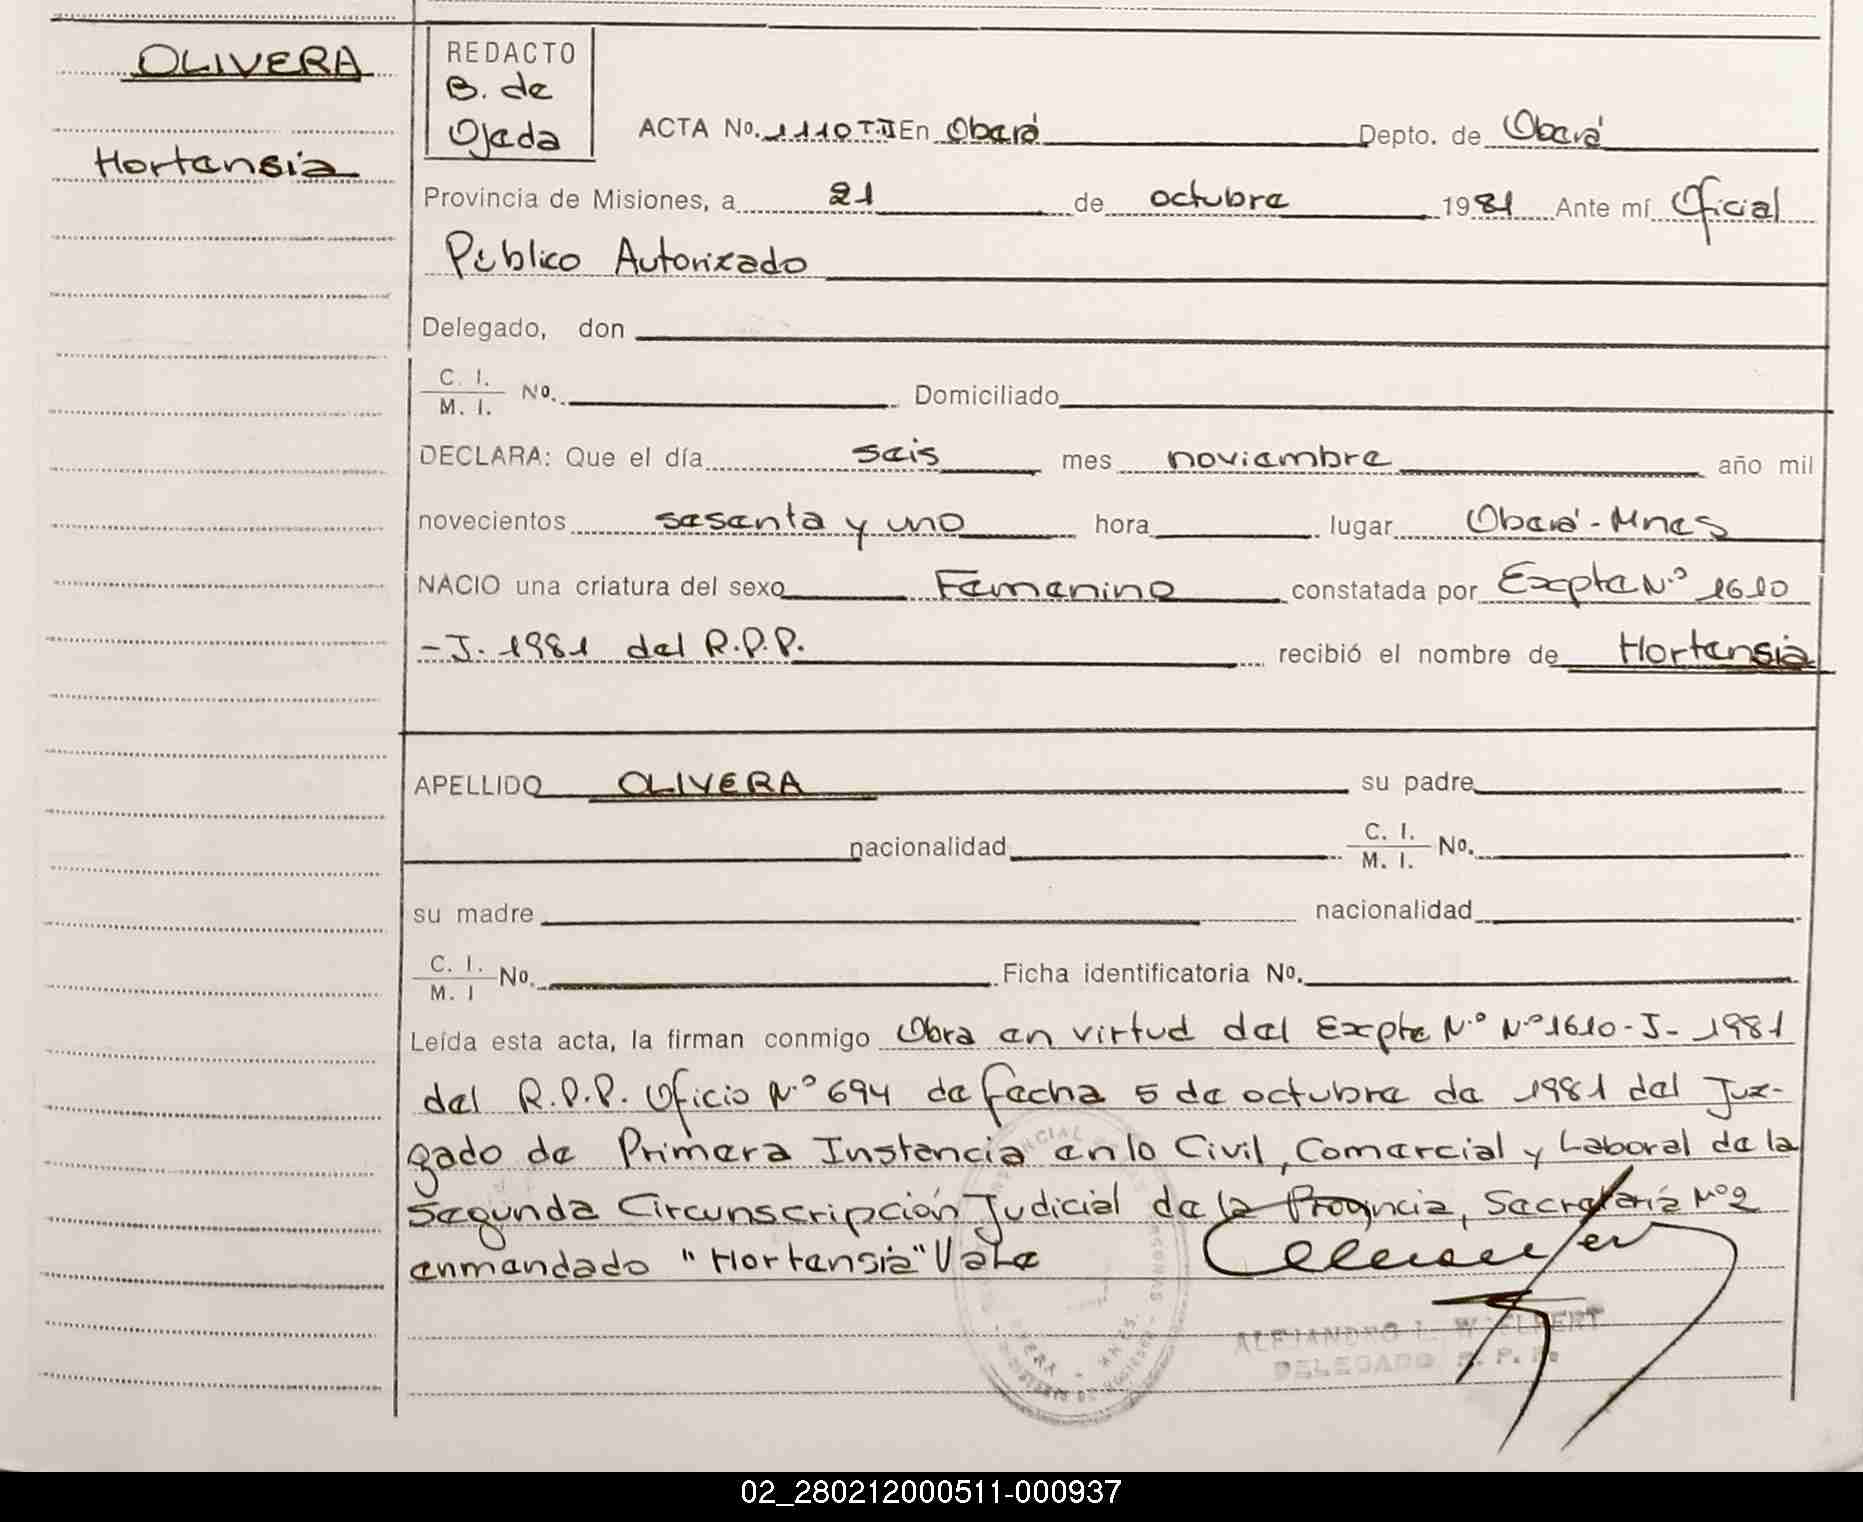 OLIVERA
Hortensia
REDACTO
B. de
Ojeda
ACTA No. 1110 T.II En Oberá Depto. de Oberá
Provincia de Misiones, a 21 de octubre 1981 Ante mí Oficial
Público Autorizado
Delegado, don
C. I.
M. I. No. Domiciliado
DECLARA: Que el día seis mes noviembre año mil
novecientos sesenta y uno hora lugar Oberá-Mnes
NACIO una criatura del sexo Femenino constatada por Expte N.º 1610
-J. 1981 del R.P.P. recibió el nombre de Hortensia
APELLIDO OLIVERA su padre
nacionalidad C. I.
M. I. No.
su madre nacionalidad
C. I.
M. I No. Ficha identificatoria No.
Leída esta acta, la firman conmigo Obra en virtud del Expte N.º N.º 1610-J-1981
del R.P.P. Oficio N.º 694 de fecha 5 de octubre de 1981 del Juz-
gado de Primera Instancia en lo Civil, Comercial y Laboral de la
Segunda Circunscripción Judicial de la Provincia, Secretaría Nº 2
enmendado "Hortensia" Vale
ALEJANDRO L.
DELEGADO R. P. P.
02_280212000511-000937